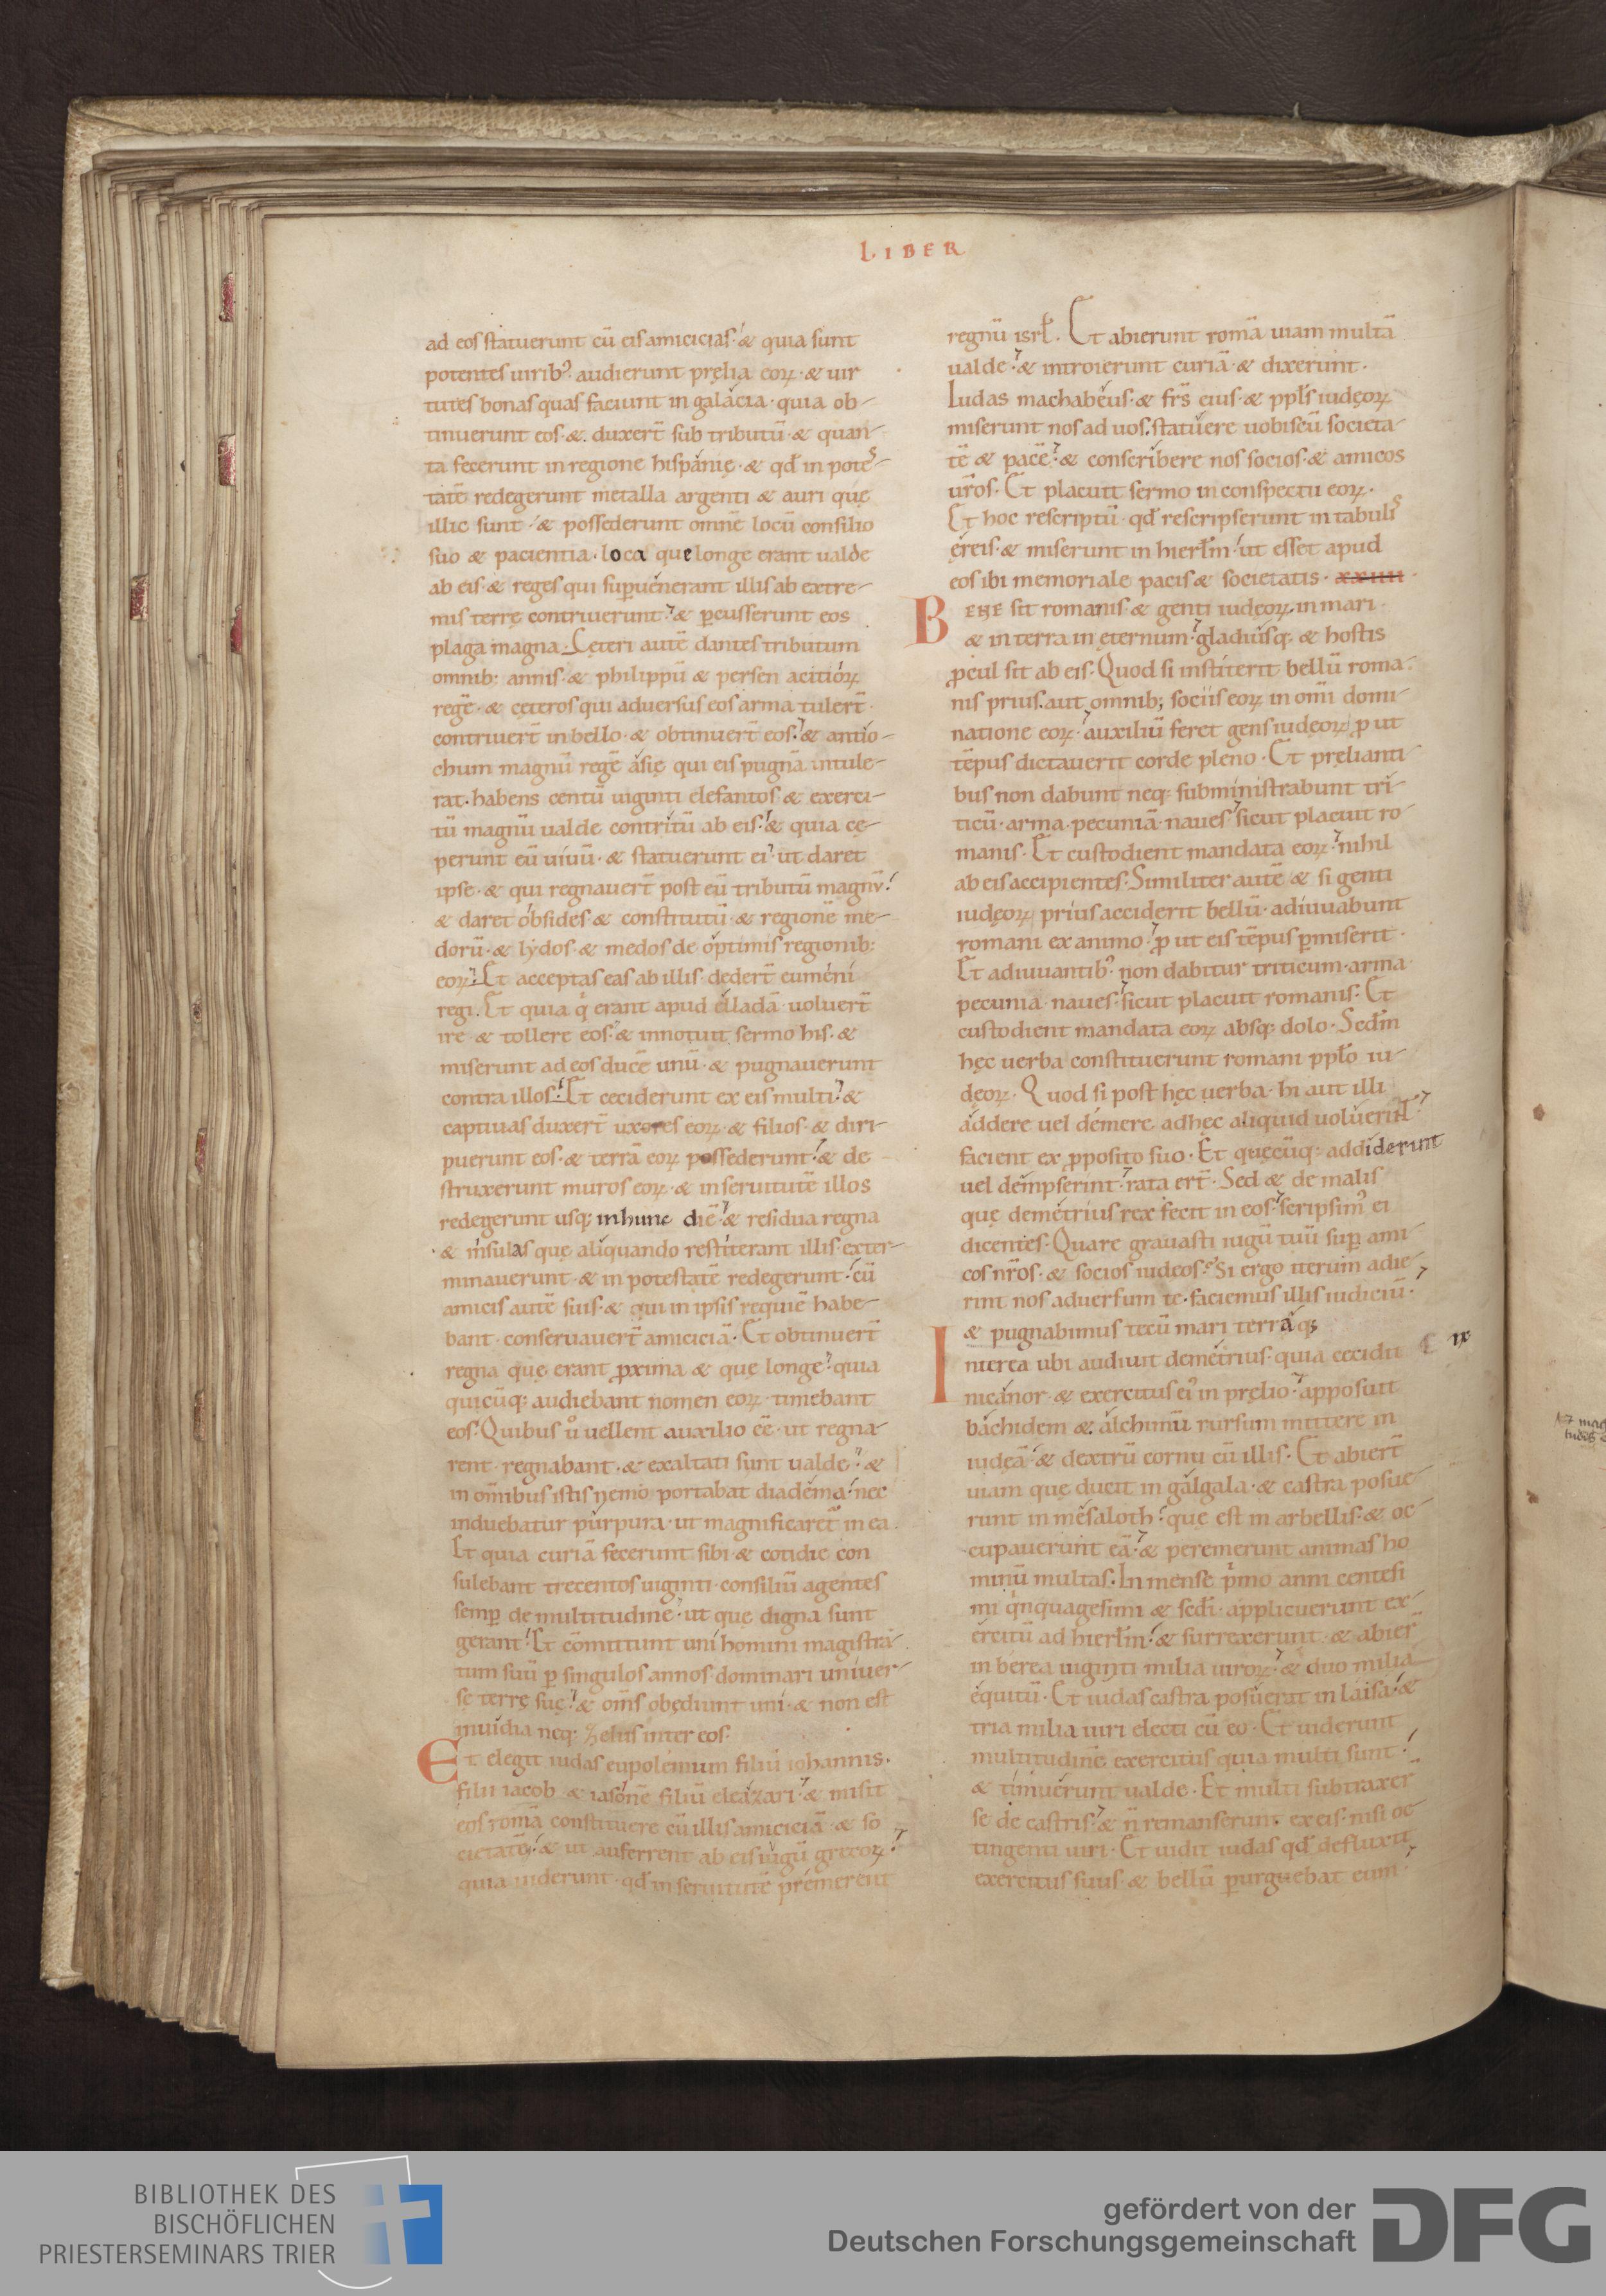 LIBER
ad eos statuerunt cū eis amicicias· & quia sunt
potentes uirib᷒· audierunt pręlia eoꝝ· & uir
tutes bonas quas faciunt in galacia· quia ob-
tinuerunt eos· & duxer̄t sub tributū· & quan-
ta fecerunt in regione hispanię· & qđ in potes-
tatē redegerunt metalla argenti & auri quę
illic sunt· & possederunt omnē locū consilio
suo & pacientia· loca que longe erant ualde
ab eis· & reges qui suꝑuenerant illis ab extre-
mis terrę contriuerunt· & ꝑcusserunt eos
plaga magna· Cęteri autē dantes tributum
omnib: annis· & philippū & persen acitioꝝ
regē· & cęteros qui aduersus eos arma tuler̄t·
contriuer̄t in bello· & obtinuer̄t eos· & antio-
chum magnū regē asię qui eis pugnā intule-
rat· habens centū uiginti elefantos & exerci-
tū magnū ualde contritū ab eis· & quia cę-
perunt eū uiuū· & statuerunt ei· ut daret
ipse· & qui regnauer̄t post eū tributū magnū·
& daret obsides· & constitutū· & regionē me-
dorū· & lydos· & medos de optimis regionib:
eoꝝ· Et acceptas eas ab illis· deder̄t eumeni
regi· Et quia q̇ erant apud elladā uoluer̄t
ire & tollere eos· & innotuit sermo his· &
miserunt ad eos ducē unū· & pugnauerunt
contra illos· Et ceciderunt ex eis multi· &
captiuas duxer̄t uxores eoꝝ· & filios· & diri-
puerunt eos· & terrā eoꝝ possederunt· & de
struxerunt muros eoꝝ· & in seruitutē illos
redegerunt usq; in hunc diē· & residua regna
& insulas quę aliquando restiterant illis· exter-
minauerunt· & in potestatē redegerunt· cū
amicis autē suis· & qui in ipsis requiē habe-
bant· conseruauer̄t amiciciā· Et obtinuer̄t
regna quę erant ꝓxima & quę longe· quia
quicūq; audiebant nomen eoꝝ· timebant
eos· Quibus ů uellent auxilio eē· ut regna-
rent· regnabant· & exaltati sunt ualde· &
in om̄ibus istis nemo portabat diadema· nec
induebatur purpura· ut magnificaret̃ in ea·
Et quia curiā fecerunt sibi· & cotidie con
sulebant trecentos uiginti· consiliū agentes
semꝑ de multitudine· ut quę digna sunt
gerant· Et cōmittunt uni homini magistra-
tum suū ꝑ singulos annos· dominari uniuer-
sę terrę suę· & om̄s obędiunt uni· & non est
inuidia neq; zelus inter eos·
Et elegit iudas eupolemum filiū iohannis·
filii iacob· & iasonē filiū eleazari· & misit
eos romā constituere cū illis amiciciā· & so
cietatē· & ut auferrent ab eis iugū grecoꝝ·
quia uiderunt· qđ in seruitutē premerent
regnū isrl̄· Et abierunt romā uiam multā
ualde· & introierunt curiā· & dixerunt·
Iudas machabeus· & fr̄s eius· & ppl̄s iudęoꝝ
miserunt nos ad uos· statuere uobiscū societa-
tē & pacē· & conscribere nos socios· & amicos
ur̄os· Et placuit sermo in conspectu eoꝝ·
Et hoc rescriptū· qđ rescripserunt in tabulis
ęreis· & miserunt in hierl̄m· ut esset apud
eos ibi memoriale pacis & societatis· xxiiii·
BENE sit romanis· & genti iudęoꝝ· in mari·
& in terra in ęternum· gladiusq; & hostis
ꝓcul sit ab eis· Quod si institerit bellū roma-
nis prius· aut omnib; sociis eoꝝ in om̄i domi-
natione eoꝝ· auxiliū feret gens iudęoꝝ ꝓ ut
tēpus dictauerit corde pleno· Et prelianti-
bus non dabunt neq; subministrabunt tri-
ticū· arma· pecuniā· naues· sicut placuit ro
manis· Et custodient mandata eoꝝ· nihil
ab eis accipientes· Similiter autē & si genti
iudęoꝝ prius acciderit bellū· adiuuabunt
romani ex animo· ꝓ ut eis tēpus ꝑmiserit·
Et adiuuantib᷒ non dabitur triticum· arma·
pecunia· naues· sicut placuit romanis· Et
custodient mandata eoꝝ absq; dolo· Scdm̄
hęc uerba constituerunt romani ppl̄o iu-
dęoꝝ· Quod si post hęc uerba· hi aut illi
addere uel demere adhęc aliquid uoluerint·
facient ex ꝓposito suo· Et quęcūq; addiderunt
uel dempserint· rata er̄t· Sed & de malis
quę demetrius rex fecit in eos· scripsim᷒ ei
dicentes· Quare grauasti iugū tuū suꝑ ami-
cos nr̄os· & socios iudeos· Si ergo iterum adie-
rint nos aduersum te· faciemus illis iudiciū·
& pugnabimus tecū mari terraq;
Interea ubi audiuit demetrius· quia cecidit ix
nicanor· & exercitus ei᷒ in pręlio· apposuit
bachidem & alchimū rursum mittere in
iudęā· & dextrū cornu cū illis· Et abier̄t
uiam quę ducit in galgala· & castra posue-
runt in mesaloth· quę est in arbellis· & oc-
cupauerunt eā· & peremerunt animas ho
minū multas· In mense p̍mo anni centesi
mi q̍nquagesimi & scdi· applicuerunt ex-
ercitū ad hierl̄m· & surrexerunt· & abier̄
in berea uiginti milia uiroꝝ· & duo milia
equitū· Et iudas castra posuerat in laisa· &
tria milia uiri electi cū eo· Et uiderunt
multitudinē exercitus quia multi sunt·
& timuerunt ualde· Et multi subtraxer̄
se de castris· & n̄ remanserunt ex eis· nisi oc-
tingenti uiri· Et uidit iudas qđ defluxit
exercitus suus· & bellū ꝑurguebat eum·
BIBLIOTHEK DES
BISCHÖFLICHEN
PRIESTERSEMINARS TRIER
gefördert von der
Deutschen Forschungsgemeinschaft
DFG